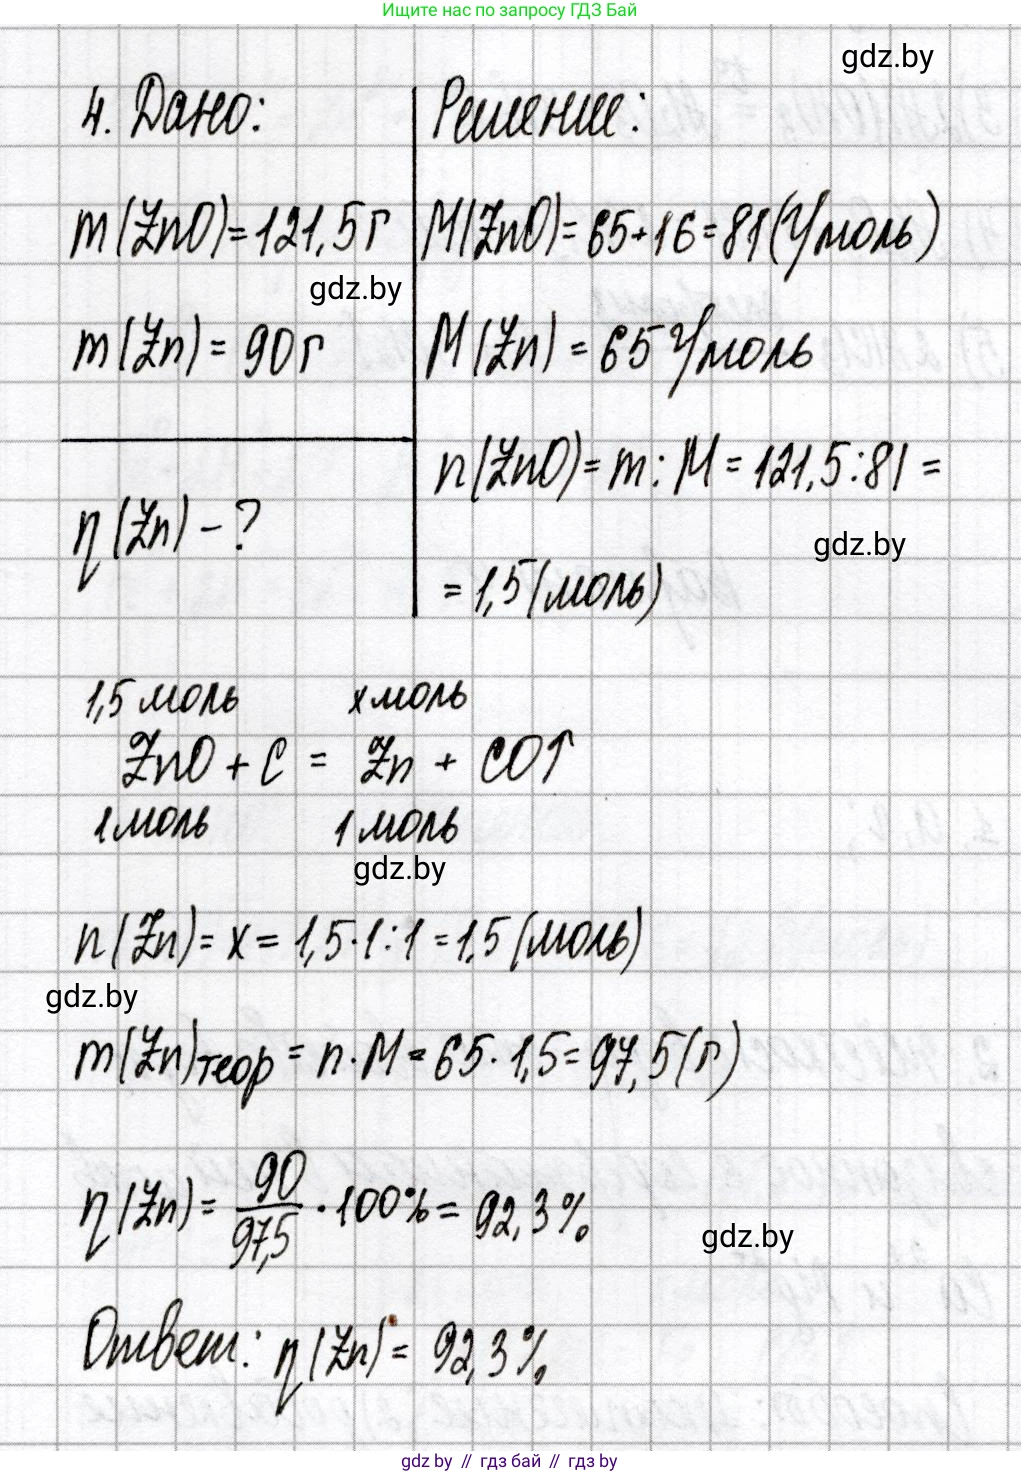 Ищите нас по запросу ГДЗ Бай
gdz.by
4. Дано:
Решение:
m(ZnO)=121,5г
M(ZnO)=65+16=81(г/моль)
gdz.by
m(Zn)=90г
M(Zn)=65г/моль
n(ZnO)=m:M=121,5:81=
η(Zn)-?
gdz.by
=1,5(моль)
1,5моль хмоль
ZnO+C = Zn + CO↑
1моль 1моль
gdz.by
n(Zn)=x=1,5·1:1=1,5(моль)
gdz.by
m(Zn)теор=n·M=65·1,5=97,5(г)
η(Zn)=90/97,5·100%=92,3%
gdz.by
Ответ: η(Zn)=92,3%
gdz.by // гдз бай // гдз by